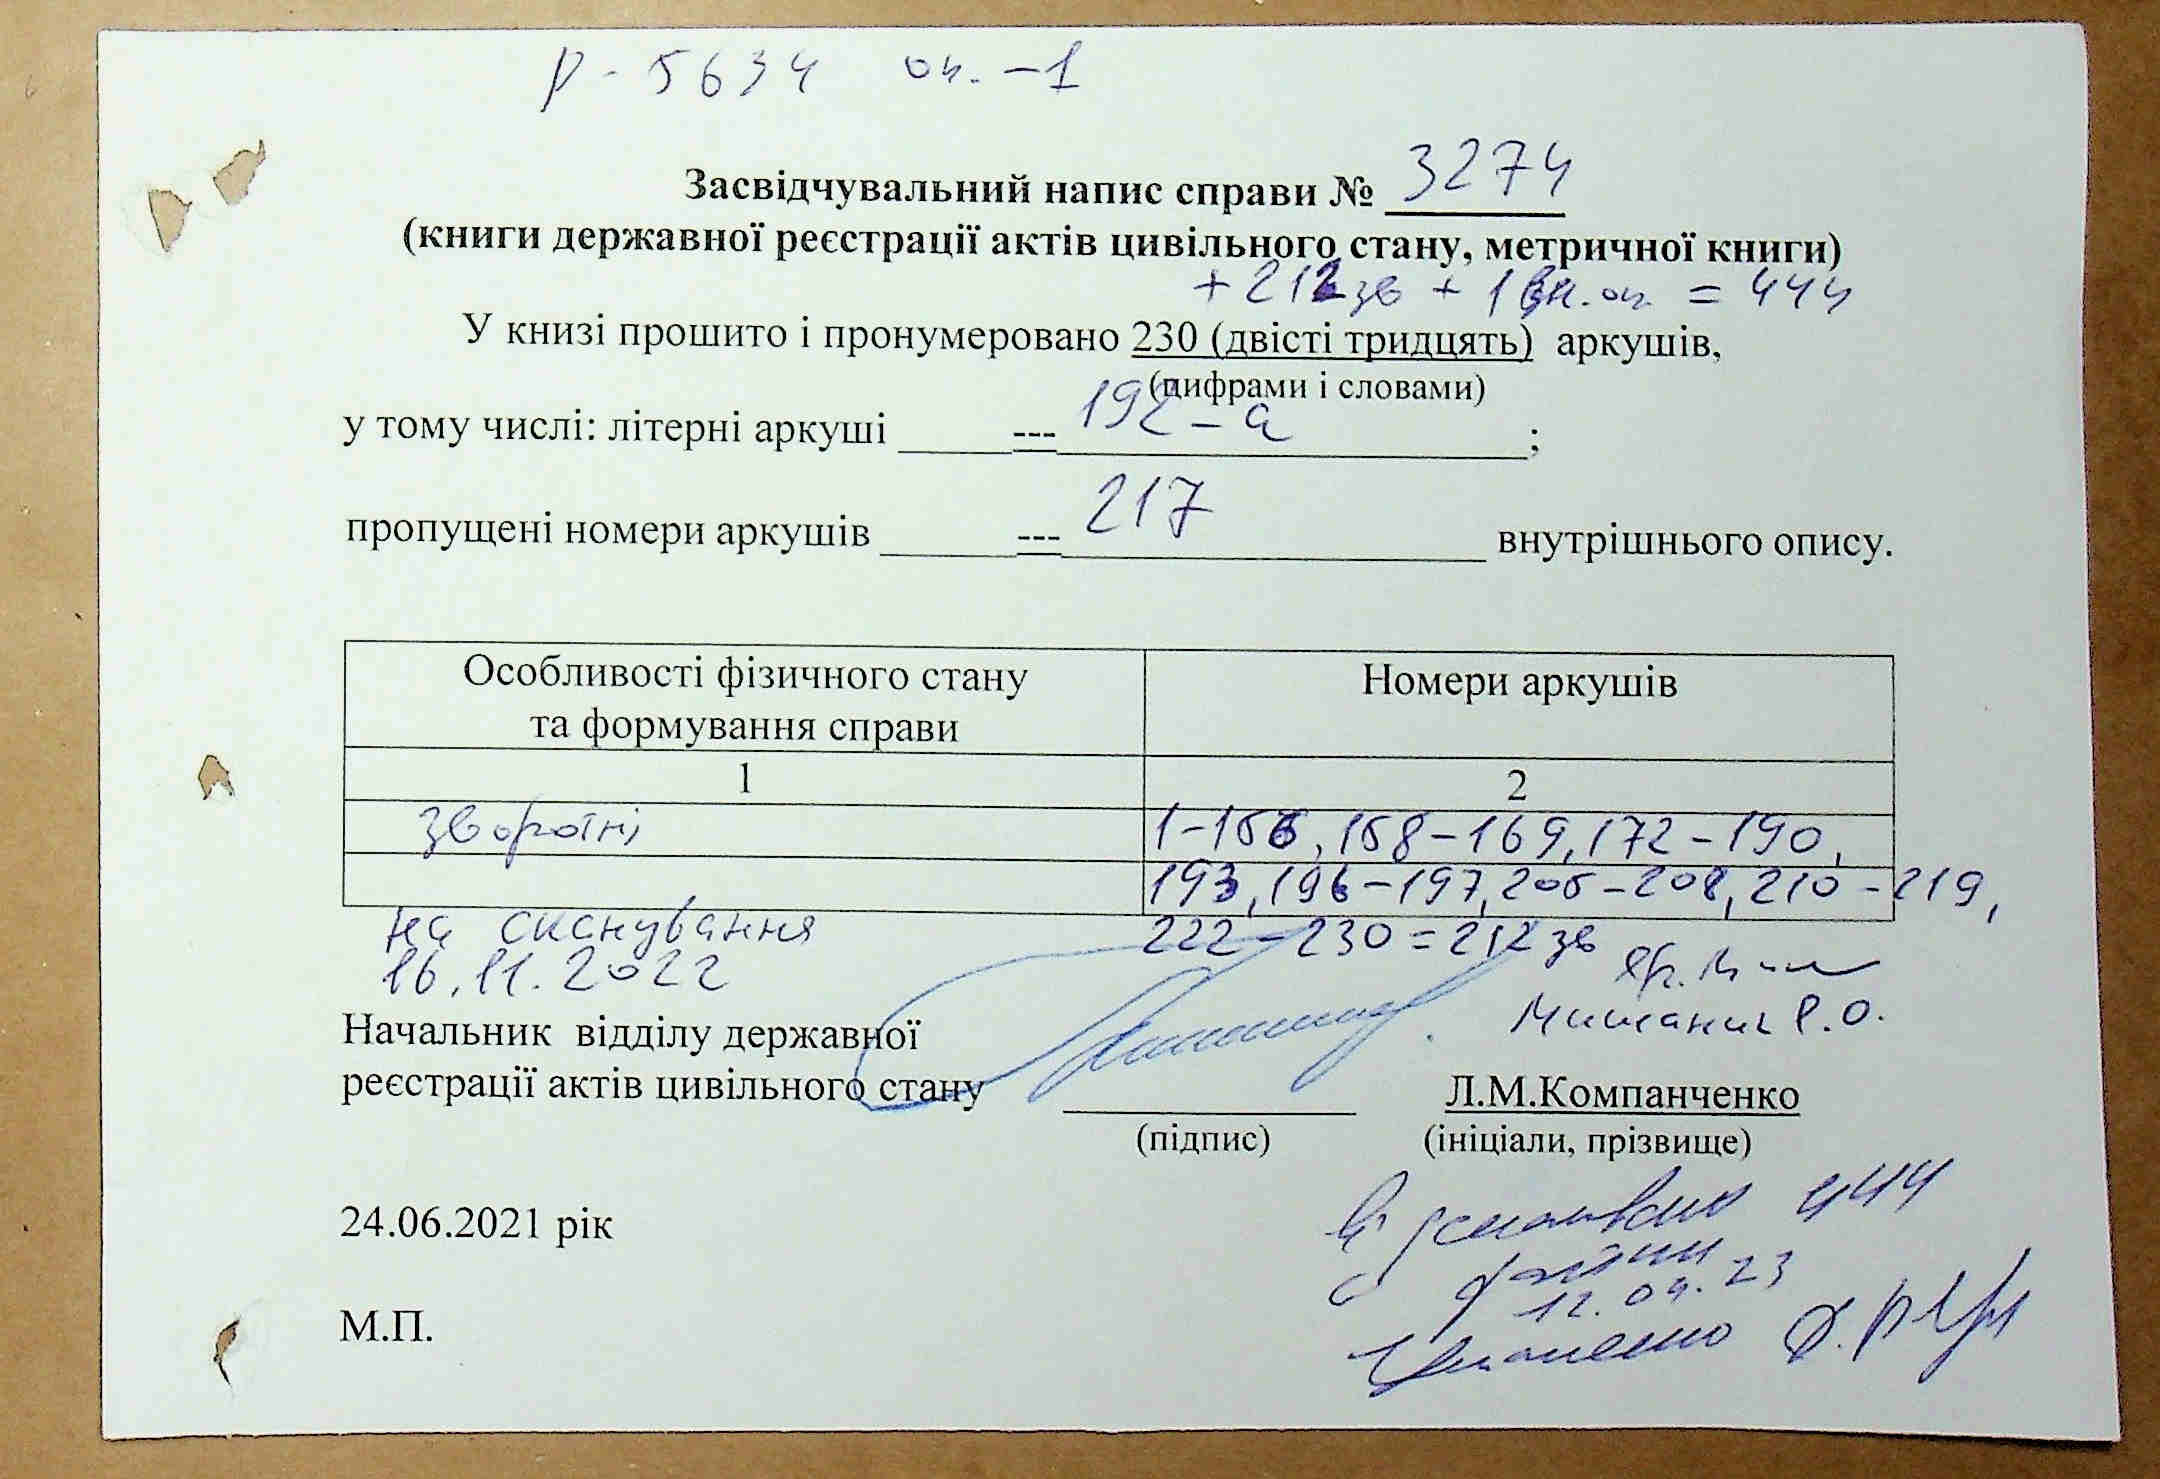 Р-5634 оп.-1
Засвідчувальний напис справи № 3274
(книги державної реєстрації актів цивільного стану, метричної книги)
+212зв + 1вн.оп. = 444
У книзі прошито і пронумеровано 230 (двісті тридцять) аркушів,
(цифрами і словами)
у тому числі: літерні аркуші --- 192-а ;
пропущені номери аркушів --- 217 внутрішнього опису.
Особливості фізичного стану Номери аркушів
та формування справи
1 2
зворотні 1-156, 158-169, 172-190,
193, 196-197, 205-208, 210-219,
на сканування 222-230=212 зв
16.11.2022
Р.О.
Начальник відділу державної
реєстрації актів цивільного стану Л.М.Компанченко
(підпис) (ініціали, прізвище)
24.06.2021 рік
444
12.04.23
М.П.